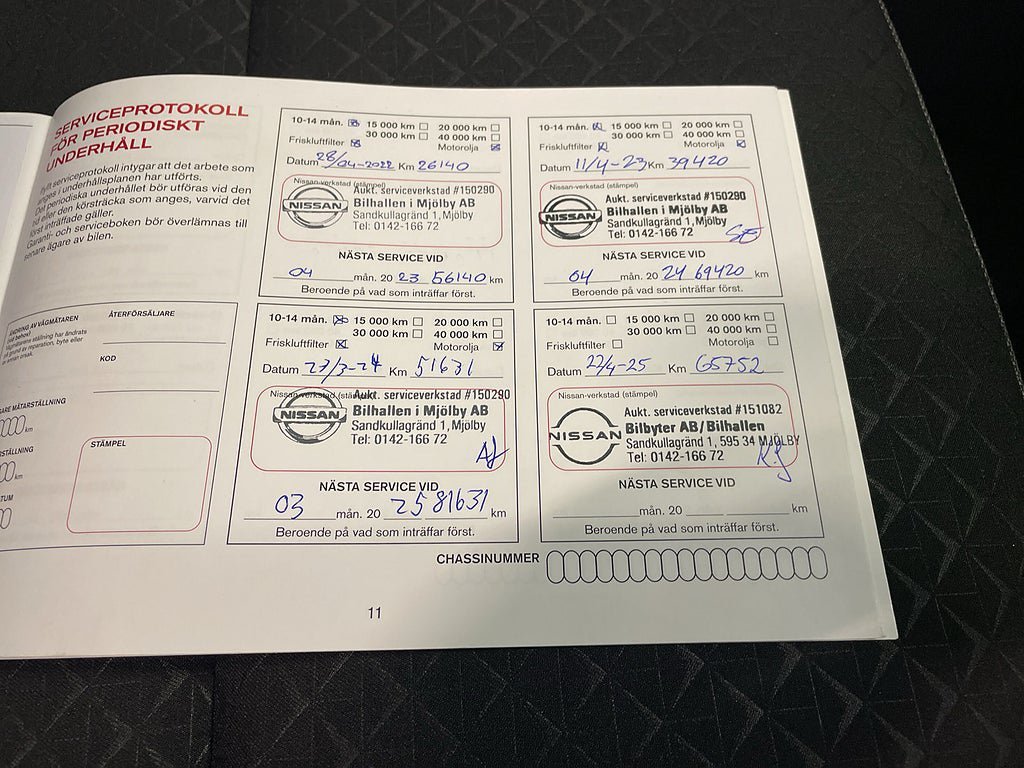 SERVICEPROTOKOLL
FÖR PERIODISKT
UNDERHÅLL
ifyllt serviceprotokoll intygar att det arbete som
anges i underhållsplanen har utförts.
Det periodiska underhållet bör utföras vid den
tid eller den körsträcka som anges, varvid det
först inträffade gäller.
Garanti- och serviceboken bör överlämnas till
senare ägare av bilen.
ÄNDRING AV VÄGMÄTAREN
(vid behov)
Vägmätarens ställning har ändrats
på grund av reparation, byte eller
av annan orsak.
ÅTERFÖRSÄLJARE
KOD
MÄTARSTÄLLNING
km
km
STÄMPEL
10-14 mån. 15 000 km 20 000 km
30 000 km 40 000 km
Friskluftfilter Motorolja
Datum 28/04-2022 Km 26140
Nissan-verkstad (stämpel)
NISSAN
Aukt. serviceverkstad #150290
Bilhallen i Mjölby AB
Sandkullagränd 1, Mjölby
Tel: 0142-166 72
NÄSTA SERVICE VID
04 mån. 20 23 56140 km
Beroende på vad som inträffar först.
10-14 mån. 15 000 km 20 000 km
30 000 km 40 000 km
Friskluftfilter Motorolja
Datum 11/4-23 Km 39420
Nissan-verkstad (stämpel)
NISSAN
Aukt. serviceverkstad #150290
Bilhallen i Mjölby AB
Sandkullagränd 1, Mjölby
Tel: 0142-166 72
NÄSTA SERVICE VID
04 mån. 20 24 69420 km
Beroende på vad som inträffar först.
10-14 mån. 15 000 km 20 000 km
30 000 km 40 000 km
Friskluftfilter Motorolja
Datum 27/3-24 Km 51631
Nissan-verkstad (stämpel)
NISSAN
Aukt. serviceverkstad #150290
Bilhallen i Mjölby AB
Sandkullagränd 1, Mjölby
Tel: 0142-166 72
NÄSTA SERVICE VID
03 mån. 20 25 81631 km
Beroende på vad som inträffar först.
10-14 mån. 15 000 km 20 000 km
30 000 km 40 000 km
Friskluftfilter Motorolja
Datum 22/4-25 Km 65752
Nissan-verkstad (stämpel)
NISSAN
Aukt. serviceverkstad #151082
Bilbyter AB/Bilhallen
Sandkullagränd 1, 595 34 MJÖLBY
Tel: 0142-166 72
NÄSTA SERVICE VID
mån. 20 km
Beroende på vad som inträffar först.
CHASSINUMMER
11